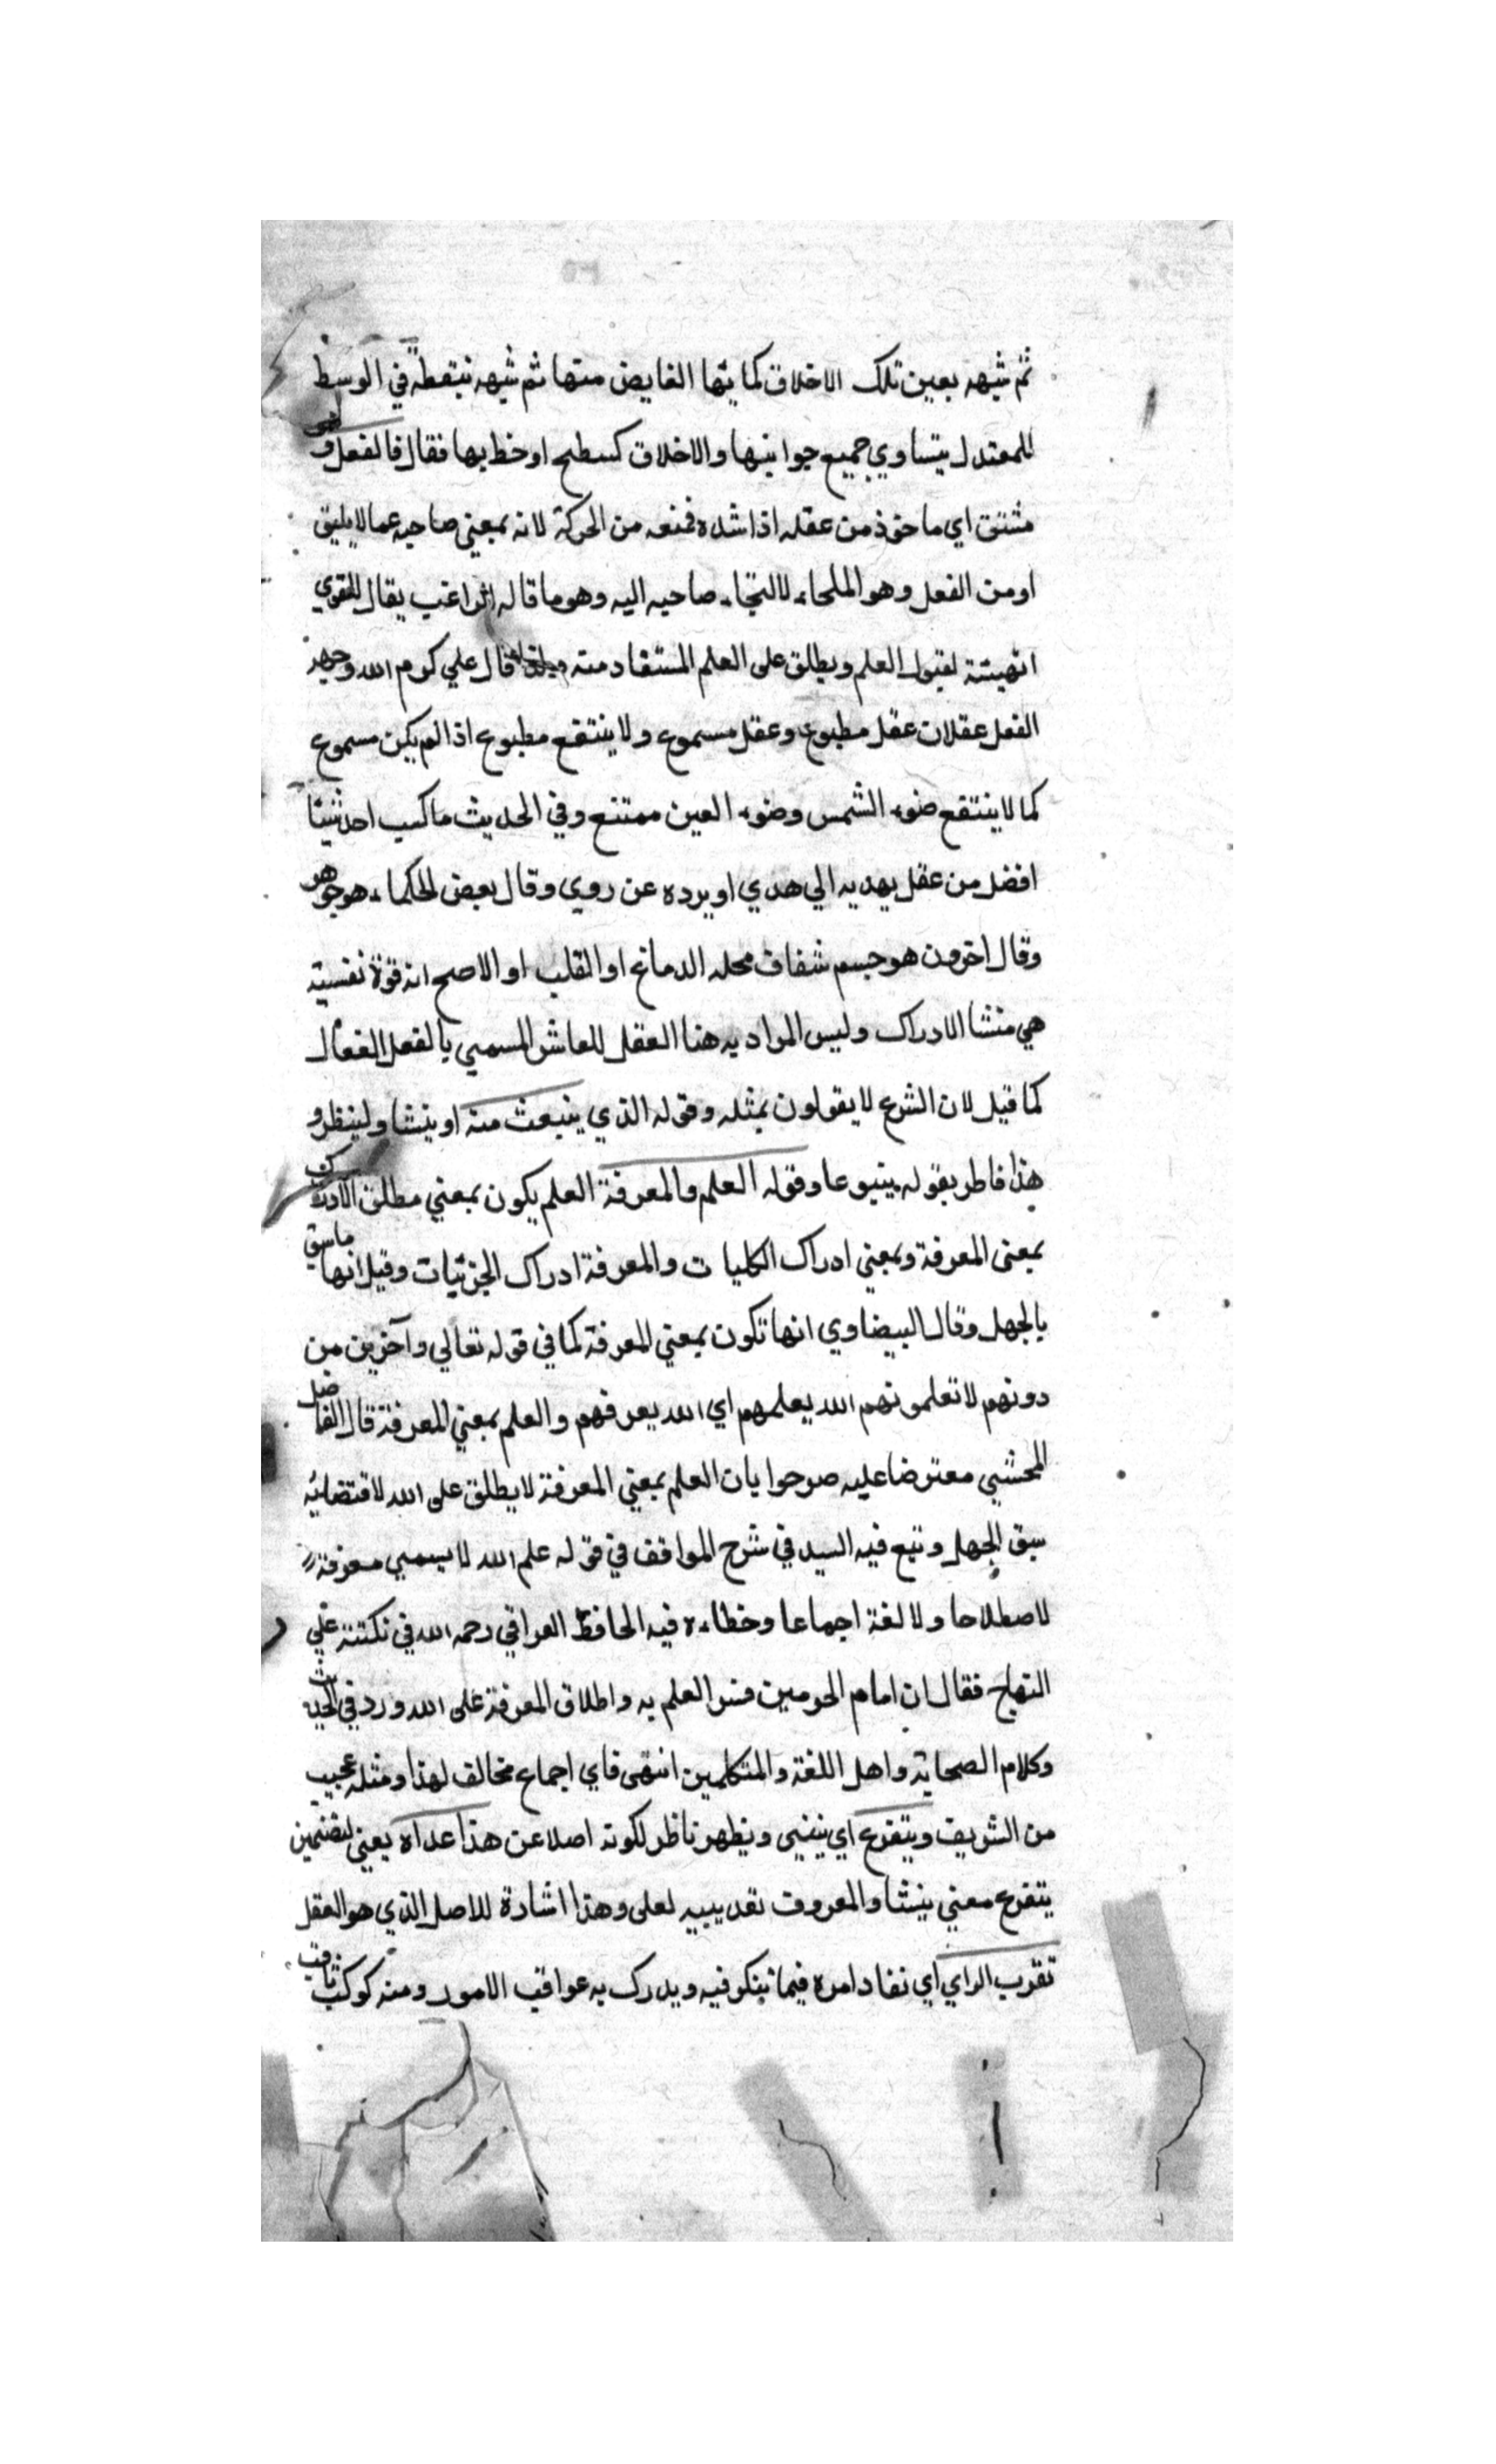 ثم شبهه بعين تلك الاخلاق كمايتها الفايض منها ثم شبهه بنقطة في الوسط
للمعتدل يتساوي جميع جوانبها والاخلاق كسطح او خط بها فقال فالفعل
مشتق اي ماخوذ من عقله اذا شده فمنعه من الحركة لانه بمعني صاحبه عما لا يليق
او من الفعل وهو الملجاء لالتجاء صاحبه اليه وهو ما قاله الراغب يقال للقوي
انهيئة لقبول العلم ويطلق على العلم المستفاد منه قال علي كرم الله وجهه
الفعل عقلان عقل مطبوع وعقل مسموع ولا ينتفع مطبوع اذا لم يكن مسموع
كما لا ينتفع ضوء الشمس وضوء العين ممتنع وفي الحديث ما كسب احد شيئا
افضل من عقل يهديه الي هدي او يرده عن روي وقال بعض الحكماء هو جوهر
وقال اخرون هو جسم شفاف محله الدماغ او القلب او الاصح انه قوة نفسية
هي منشا الادراك وليس المراد به هنا العقل للعاشر المسمي بالفعل الفعال
كما قيل لان الشرع لا يقولون بمثله وقوله الذي ينبعث منه او ينشا ولينظر و
هذا فاطر بقوله ينبوعا وقوله العلم والمعرفة العلم يكون بمعني مطلق الادراك
بمعنى المعرفة وبمعني ادراك الكليات والمعرفة ادراك الجزئيات وقيل انها ماسبق
بالجهل وقال البيضاوي انها تكون بمعني المعرفة كما في قوله تعالي وآخرين من
دونهم لا تعلمونهم الله يعلمهم اي الله يعرفهم والعلم بمعني المعرفة قال الفاضل
المحشي معترضا عليه صرحوا بان العلم بمعني المعرفة لا يطلق على الله لاقتضائه
سبق الجهل وتبع فيه السيد في شرح المواقف في قوله علم الله لا يسمي معرفة
لاصطلاحا ولا لغة اجماعا وخطاءه فيه الحافظ العراقي رحمه الله في نكتته علي
النهاج فقال ان امام الحرمين فسر العلم به واطلاق المعرفة على الله ورد في الحديث
وكلام الصحابة واهل اللغة والمتكلمين انتهى فاي اجماع مخالف لهذا ومثله عجيب
من الشريف ويتفرع اي ينبني ويظهر ناظر لكونه اصلا عن هذا عداه يعني لتضمين
يتفرع معني ينشا والمعروف تعديبيه لعلى وهذا اشارة للاصل الذي هو العقل
تقرب الراي اي نفاد امره فيما يتكرفيه ويدرك به عواقب الامور ومنه كوكب ثاقب